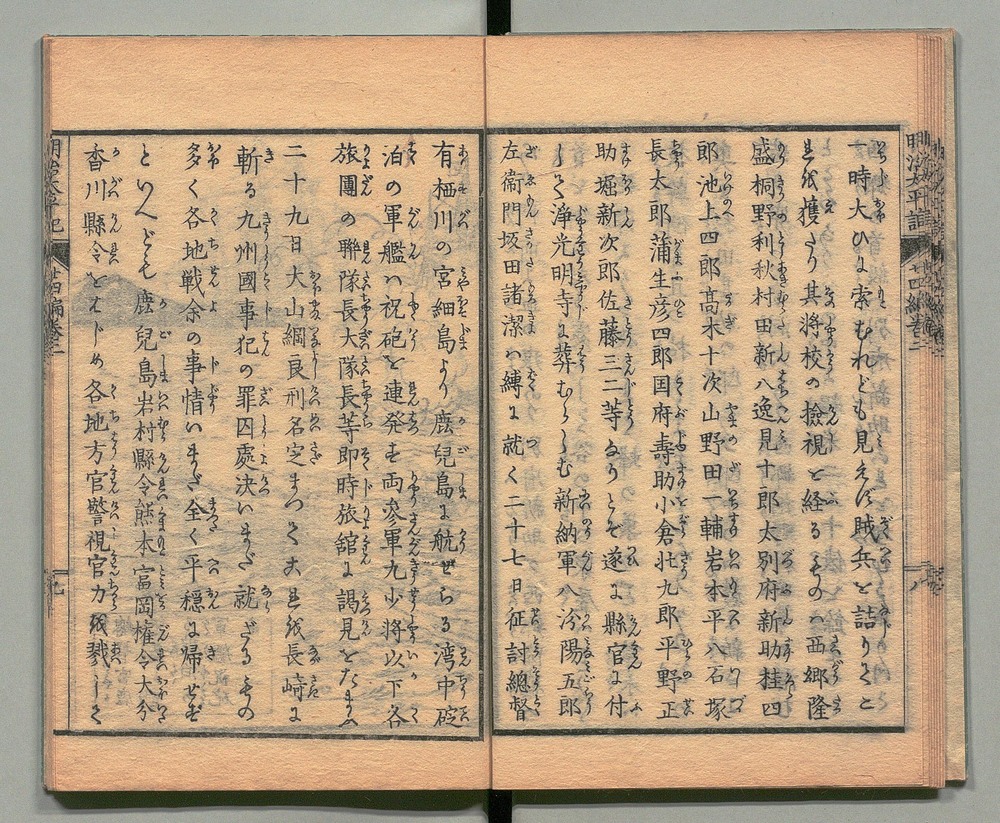 一時大ひに索むれども見えず賊兵を詰りてこ
是を獲たり其将校の撿視を経るものハ西郷隆
盛桐野利秋村田新八逸見十郎太別府新助桂四
郎池上四郎高木十次山野田一輔岩本平八石塚
長太郎蒲生彦四郎国府壽助小倉壮九郎平野正
助堀新次郎佐藤三二等なりとぞ遂に縣官に付
して浄光明寺に葬むらしむ新納軍八汾陽五郎
左衞門坂田諸潔ハ縛に就く二十七日征討總督
有栖川の宮細島より鹿兒島に航せらる湾中碇
泊の軍艦ハ祝砲を連発す両參軍九少将以下各
旅團の聯隊長大隊長等即時旅舘に謁見をたまふ
二十九日大山綱良刑名定まつて是を長崎に
斬る九州國事犯の罪囚處決いまだ就ざるもの
多く各地戦余の事情いまだ全く平穏に帰せず
といへども鹿兒島岩村縣令熊本富岡権令大分
香川縣令をはじめ各地方官警視官力を戮して